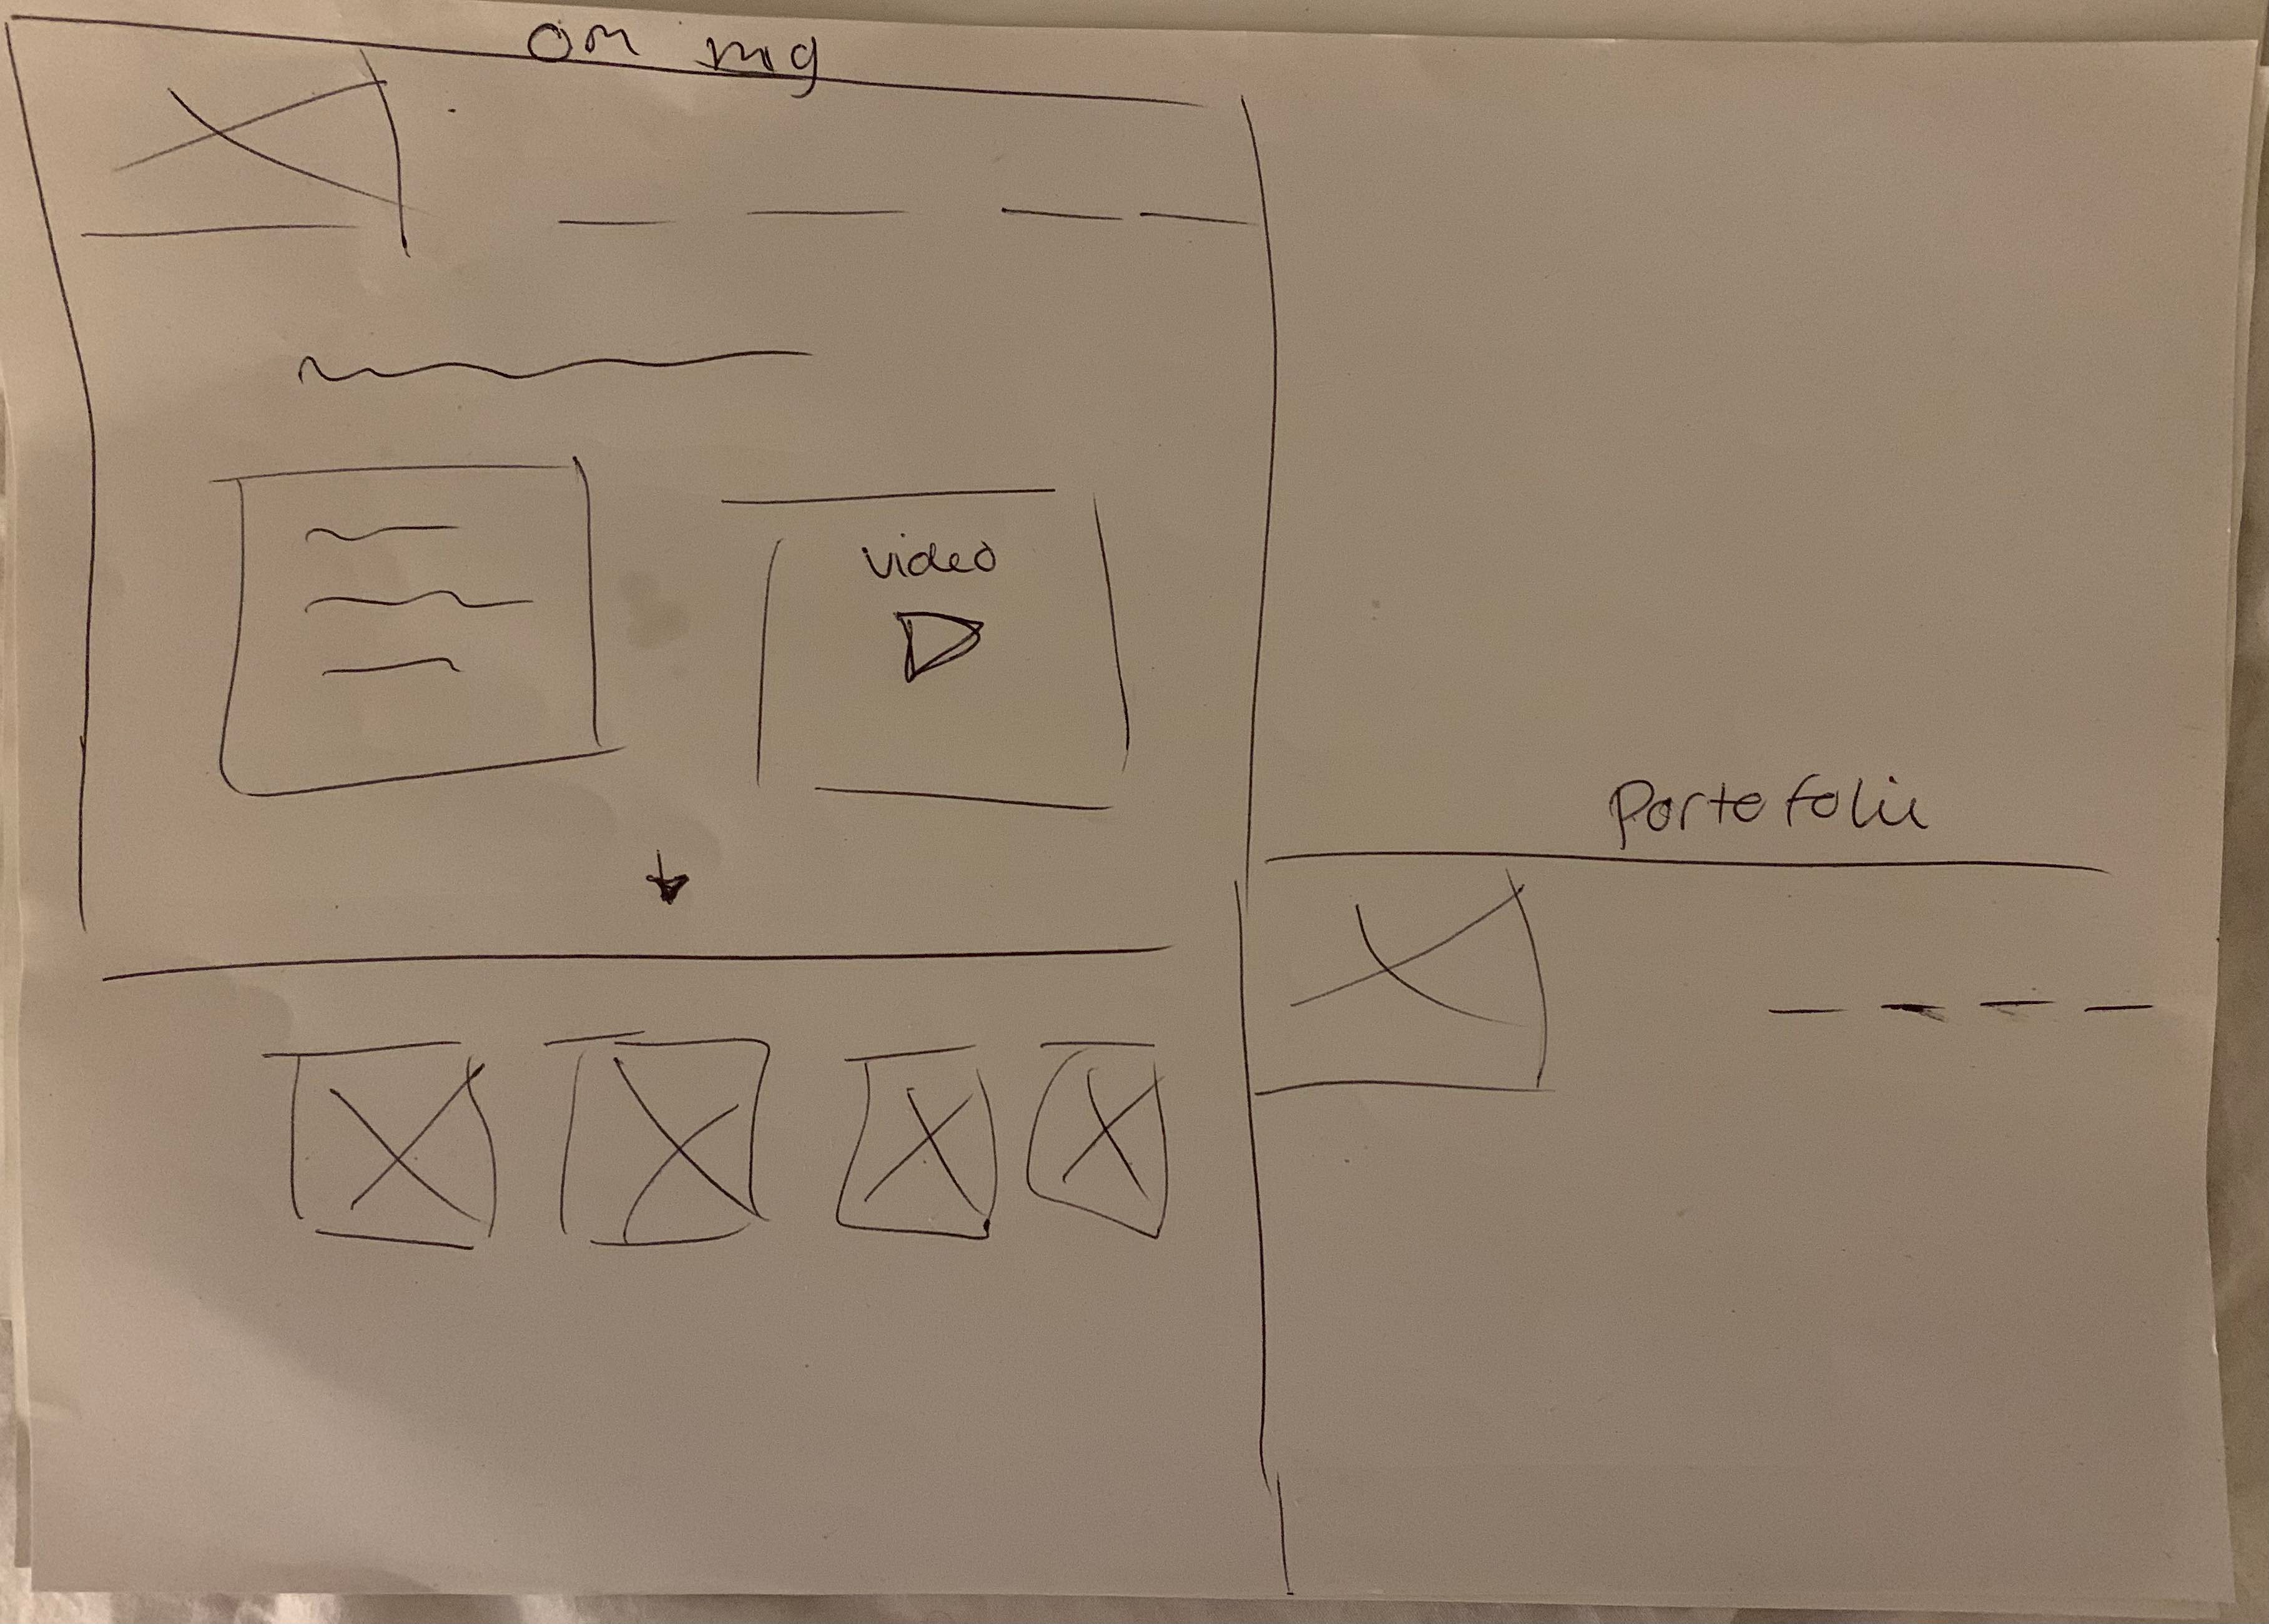 om mg
video
Portefolie